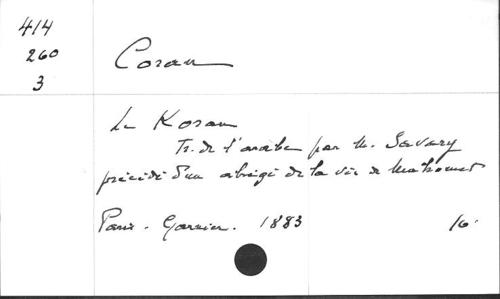 414
260
3
Coran
Le Koran
Tr. de l'arabe par M. Savary
précédé d'un abrégé de la vie de Mahomet
Paris. Garnier. 1883
16.